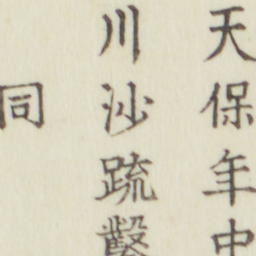 天保年中
川沙疏鑿
同